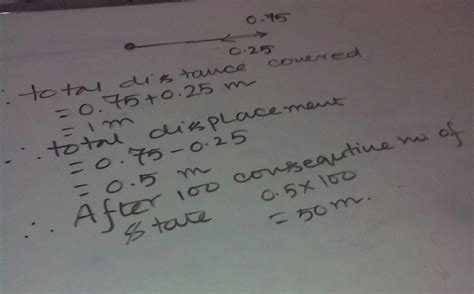 0.75
0.25
∴ total distance covered
= 0.75+0.25 m
= 1m
∴ total displacement
= 0.75-0.25
= 0.5 m
∴ After 100 consequtive no. of
state 0.5×100
= 50m.